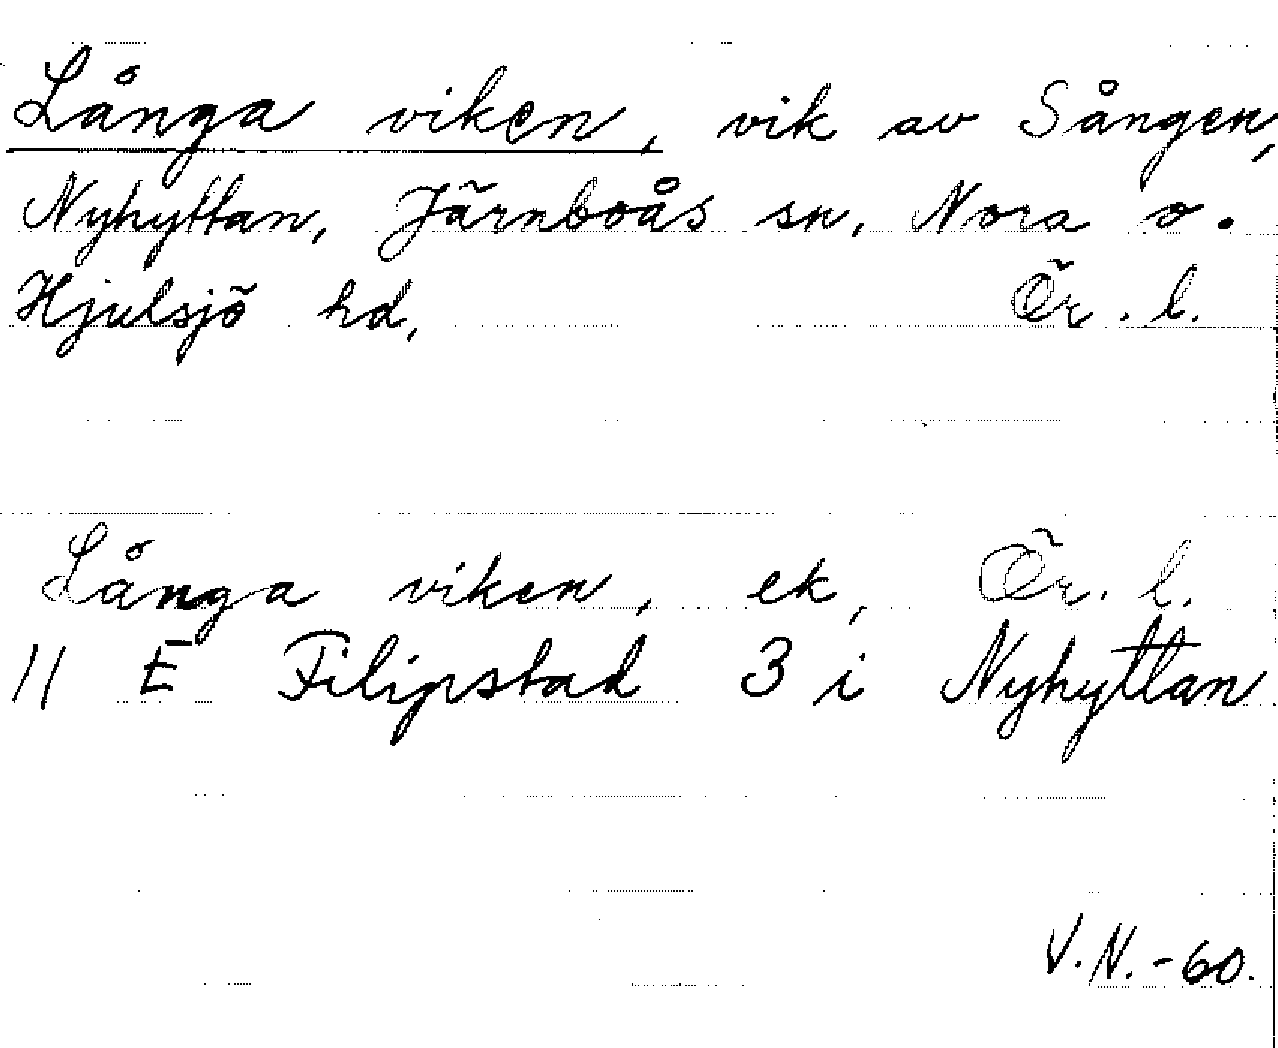 Långa viken, vik av Sången,
Nyhyttan, Järnboås sn, Nora o.
Hjulsjö hd, Ör. l.
Långa viken, ek, Ör. l.
11 E Filipstad 3 i Nyhyttan
V.N. -60.